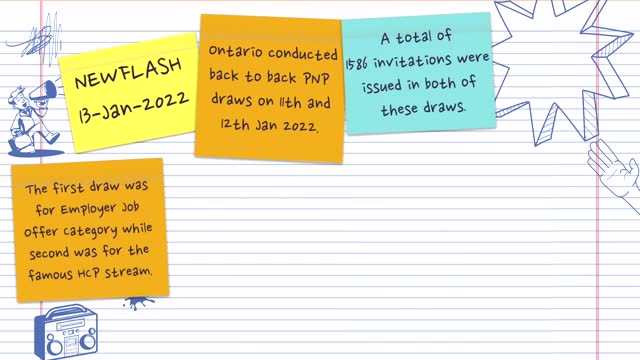 NEWFLASH
13-Jan-2022
Ontario conducted
back to back PNP
draws on 11th and
12th Jan 2022.
A total of
1586 invitations were
issued in both of
these draws.
The first draw was
for Employer Job
offer category while
second was for the
famous HCP stream.